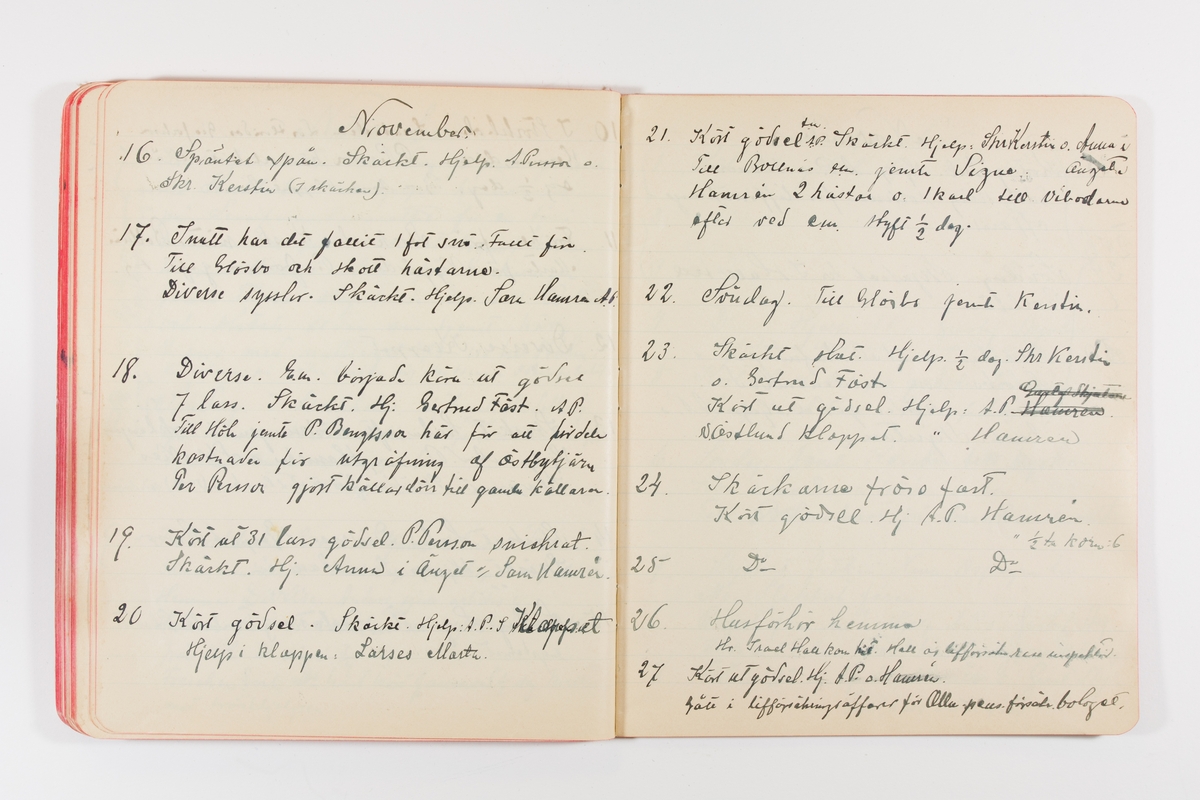 November.
16. Späntat spån. Skäckt. Hjelp. A. Persson o.
Skr. Kerstin (I skäcken)
17. I natt har det fallit 1 fot snö. Fallit för
Till Glösbo och skott hästarne.
Diverse sysslor. Skäckt. Hjelp. Sara Hamrén A.P.
18. Diverse. E.m. började köra ut gödsel
7 lass. Skäckt. Hj. Gertrud Fäst. A.P.
Till Höle jemte P. Bengtsson här för att fördela
kostnader för utgräfning af Östbytjärn
Per Persson gjort källardörr till gamla källaren.
19. Kört ut 31 lass gödsel. P. Persson snickrat.
Skäckt. Hj. Anna i Änget Sara Hamrén.
20 Kört gödsel. Skäckt. Hjelp: A.P. Klappet
Hjelp i klappen: Larses Marta.
21. Kört gödsel fm. Skäckt. Hjelp: Skr Kerstin o. Anna i
Till Bollnäs em. jemte Signe. Änget
Hamrén 2 hästar o. 1 karl till Vibodarne
efter ved em. Styft ½ dag.
22. Söndag. Till Glösbo jemte Kerstin.
23. Skäckt slut. Hjelp. ½ dag. Skr Kerstin
o. Gertrud Fäst
Kört ut gödsel. Hjelp: A.P. Hamrén
Västlund Klappat. " Hamrén
24. Skäckarne frös fast.
Kört gödsel. Hj A.P. Hamrén.
" ½ ta korn: 6
25 Do Do
26. Husförhör hemma
Hr. Israel Hall kom hit. Hall är lifförsäkrane inspektör
27 Kört ut gödsel. Hj. A.P. o. Hamrén.
Gått i lifförsäkringsaffärer för Allm. pens. försäk. bolaget.